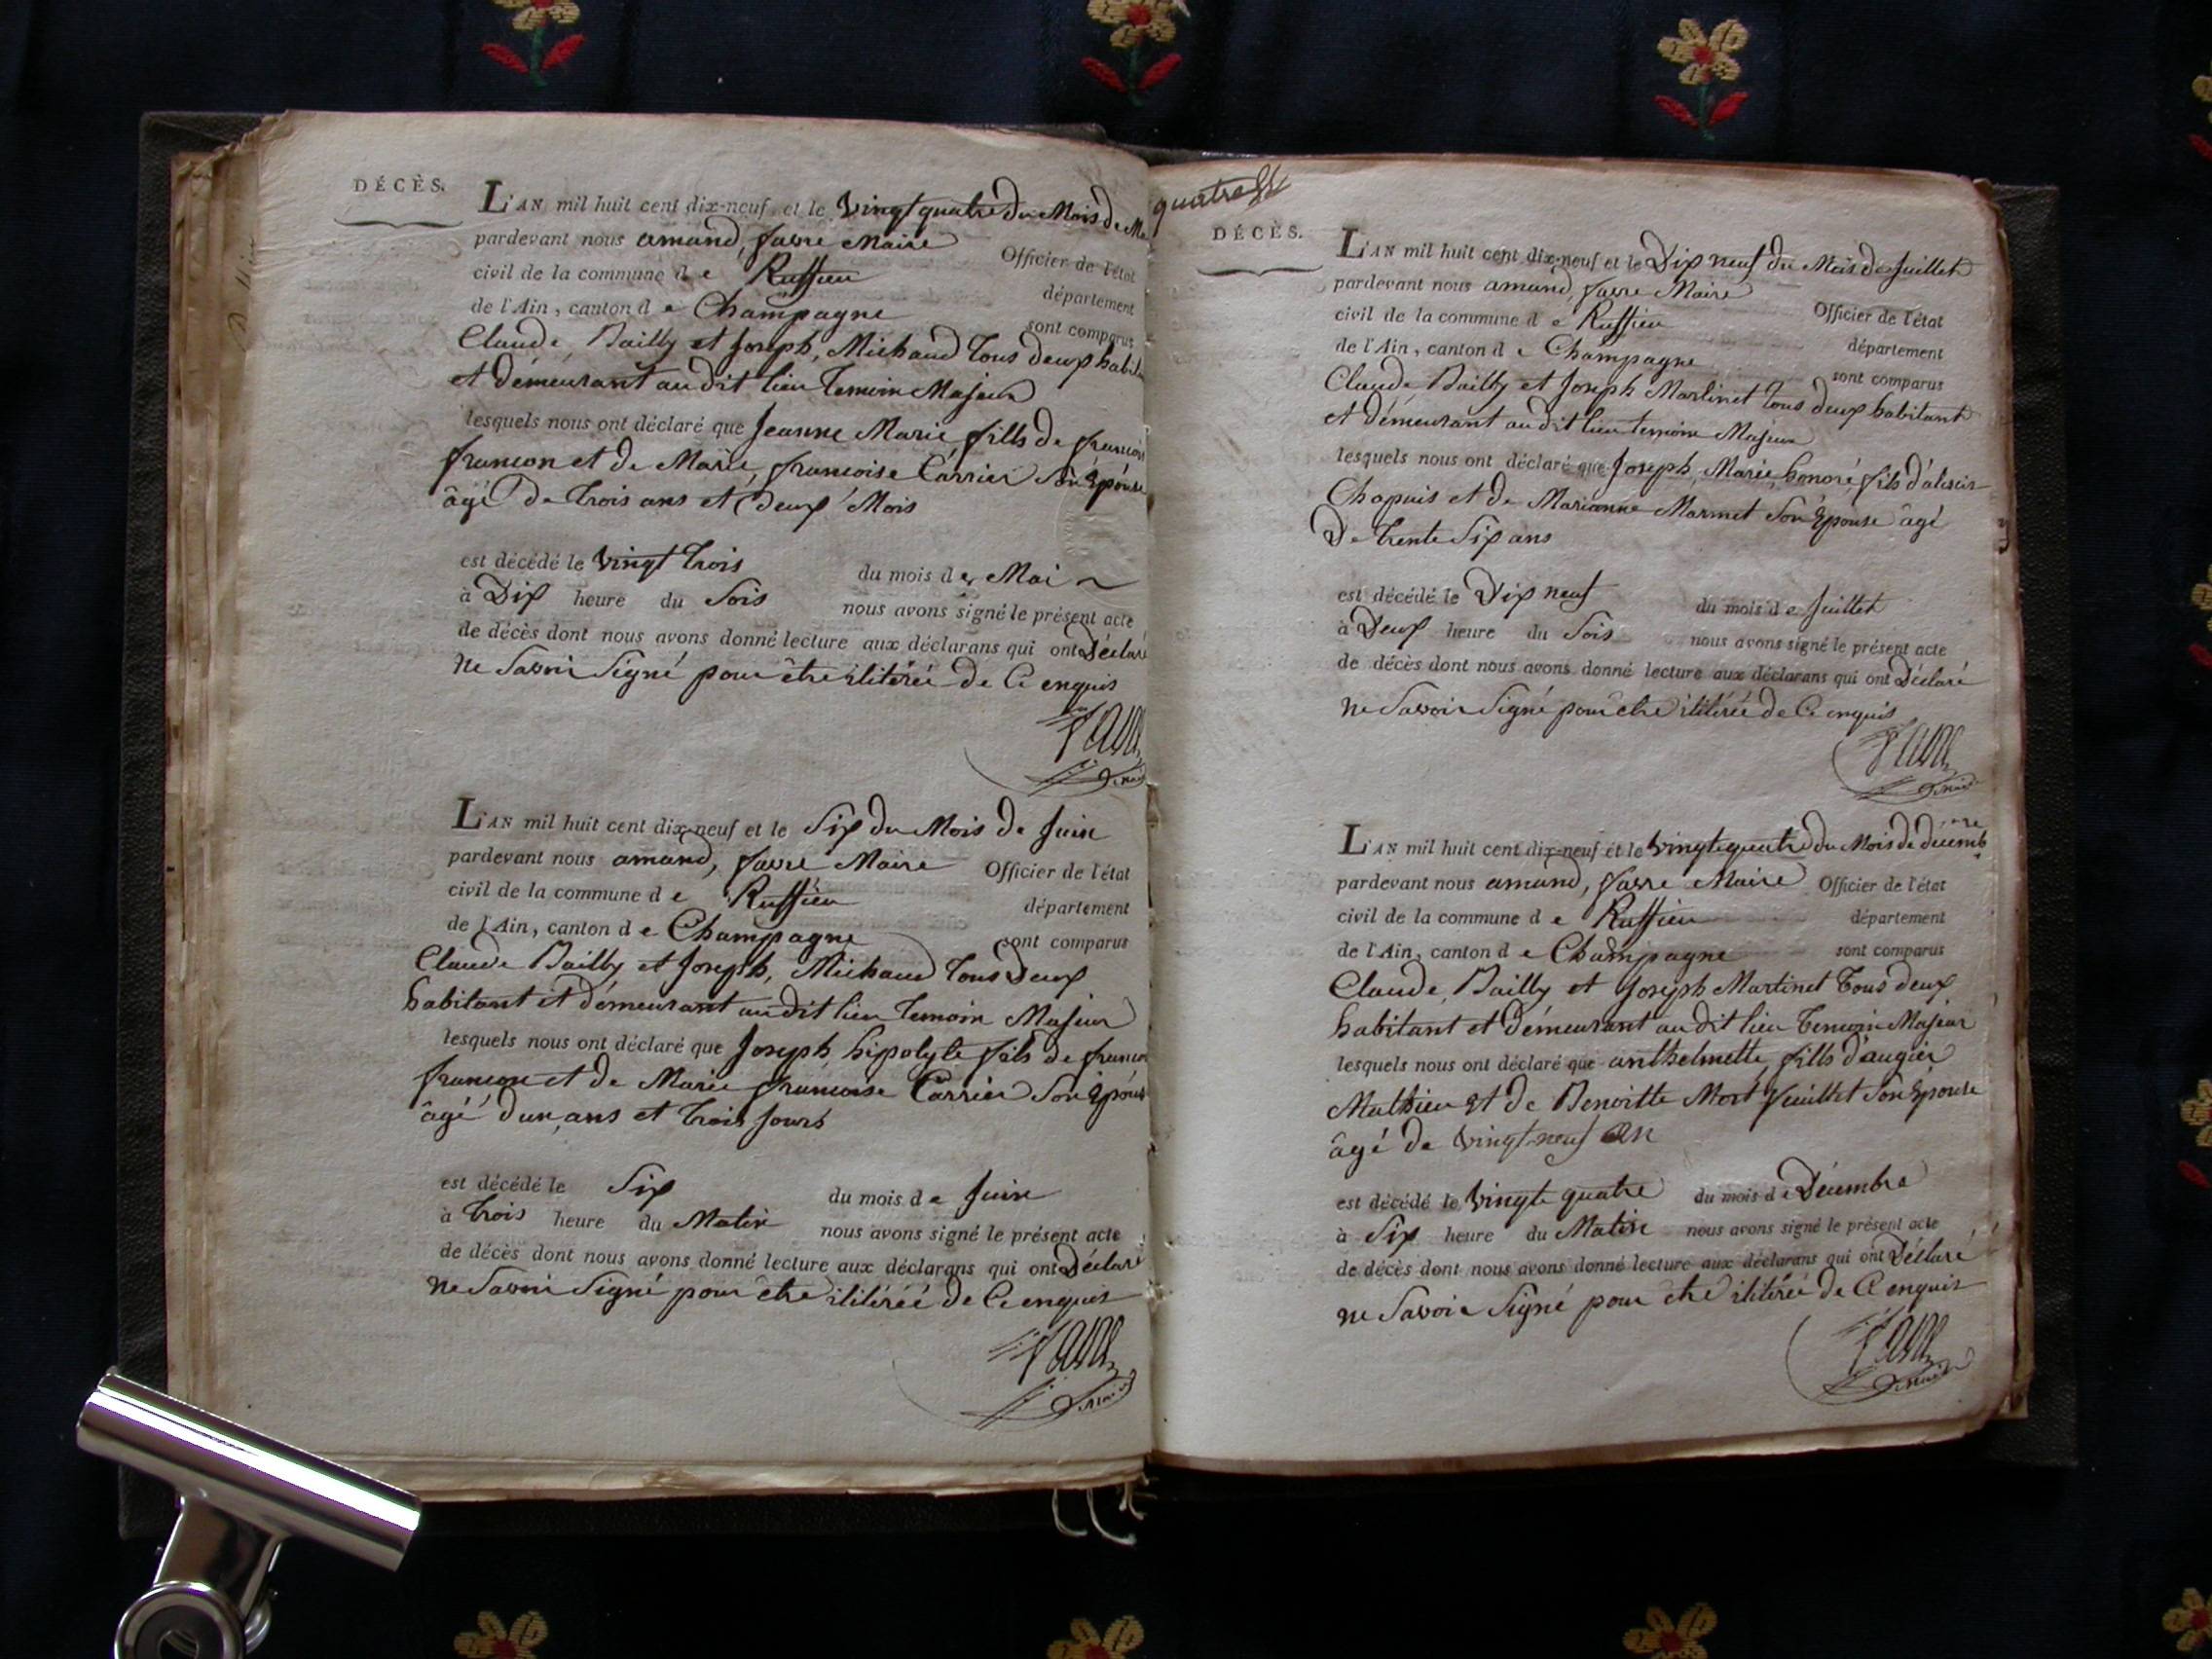 DÉCÈS.
L'AN mil huit cent dix-neuf et le vingt quatre du Mois de
pardevant nous amand, favre Maire Officier de l'état
civil de la commune de Ruffieu département
de l'Ain, canton de Champagne sont comparus
Claude, Bailly et Joseph, Michaud tous deux
et démeurant audit lieu temoin Majeur
lesquels nous ont déclaré que Jeanne Marie fills de
françon et de Marie, francoise Carrier Son Epouse
âgé de trois ans et deux Mois
est décédé le vingt trois du mois de Mai
à Dix heure du Sois nous avons signé le présent acte
de décès dont nous avons donné lecture aux déclarans qui ont Déclaré
ne Savoir Signé pour être ilitérée de Ce enquis
L'AN mil huit cent dix-neuf et le Six du Mois de Juin
pardevant nous amand, favre Maire Officier de l'état
civil de la commune de Ruffieu département
de l'Ain, canton de Champagne sont comparus
Claude Bailly et Joseph, Michaud tous Deux
habitant et démeurant audit lieu temoin Majeur
lesquels nous ont déclaré que Joseph hipolyte fils de
françon et de Marie francoise Carrier Son Epouse
âgé d'un ans et trois Jours
est décédé le Six du mois de Juin
à trois heure du Matin nous avons signé le présent acte
de décès dont nous avons donné lecture aux déclarans qui ont Déclaré
ne Savoir Signé pour être ilitérée de Ce enquis
quatre
DÉCÈS.
L'AN mil huit cent dix-neuf et le Dix neuf du Mois de Juillet
pardevant nous amand, favre Maire Officier de l'état
civil de la commune de Ruffieu département
de l'Ain, canton de Champagne sont comparus
Claude Bailly et Joseph Martinet tous deux habitant
et démeurant audit lieu temoin Majeur
lesquels nous ont déclaré que Joseph, Marie, honoré, fils
Chapuis et de Marianne Marmet Son Epouse âgé
De trente Six ans
est décédé le Dix neuf du mois de Juillet
à Deux heure du Sois nous avons signé le présent acte
de décès dont nous avons donné lecture aux déclarans qui ont Déclaré
ne Savoir Signé pour être ilitérée de Ce enquis
L'AN mil huit cent dix-neuf et le vingte quatre du Mois de décembre
pardevant nous amand, favre Maire Officier de l'état
civil de la commune de Ruffieu département
de l'Ain, canton de Champagne sont comparus
Claude, Bailly et Joseph Martinet tous deux
habitant et démeurant audit lieu temoin Majeur
lesquels nous ont déclaré que anthelmette, fills d'augier
Mathieu et de Benoitte Mort Vuillet Son Epouse
âgé de vingt-neuf an
est décédé le vingte quatre du mois de Décembre
à Six heure du Matin nous avons signé le présent acte
de décès dont nous avons donné lecture aux déclarans qui ont Déclaré
ne Savoir Signé pour être ilitérée de Ce enquis